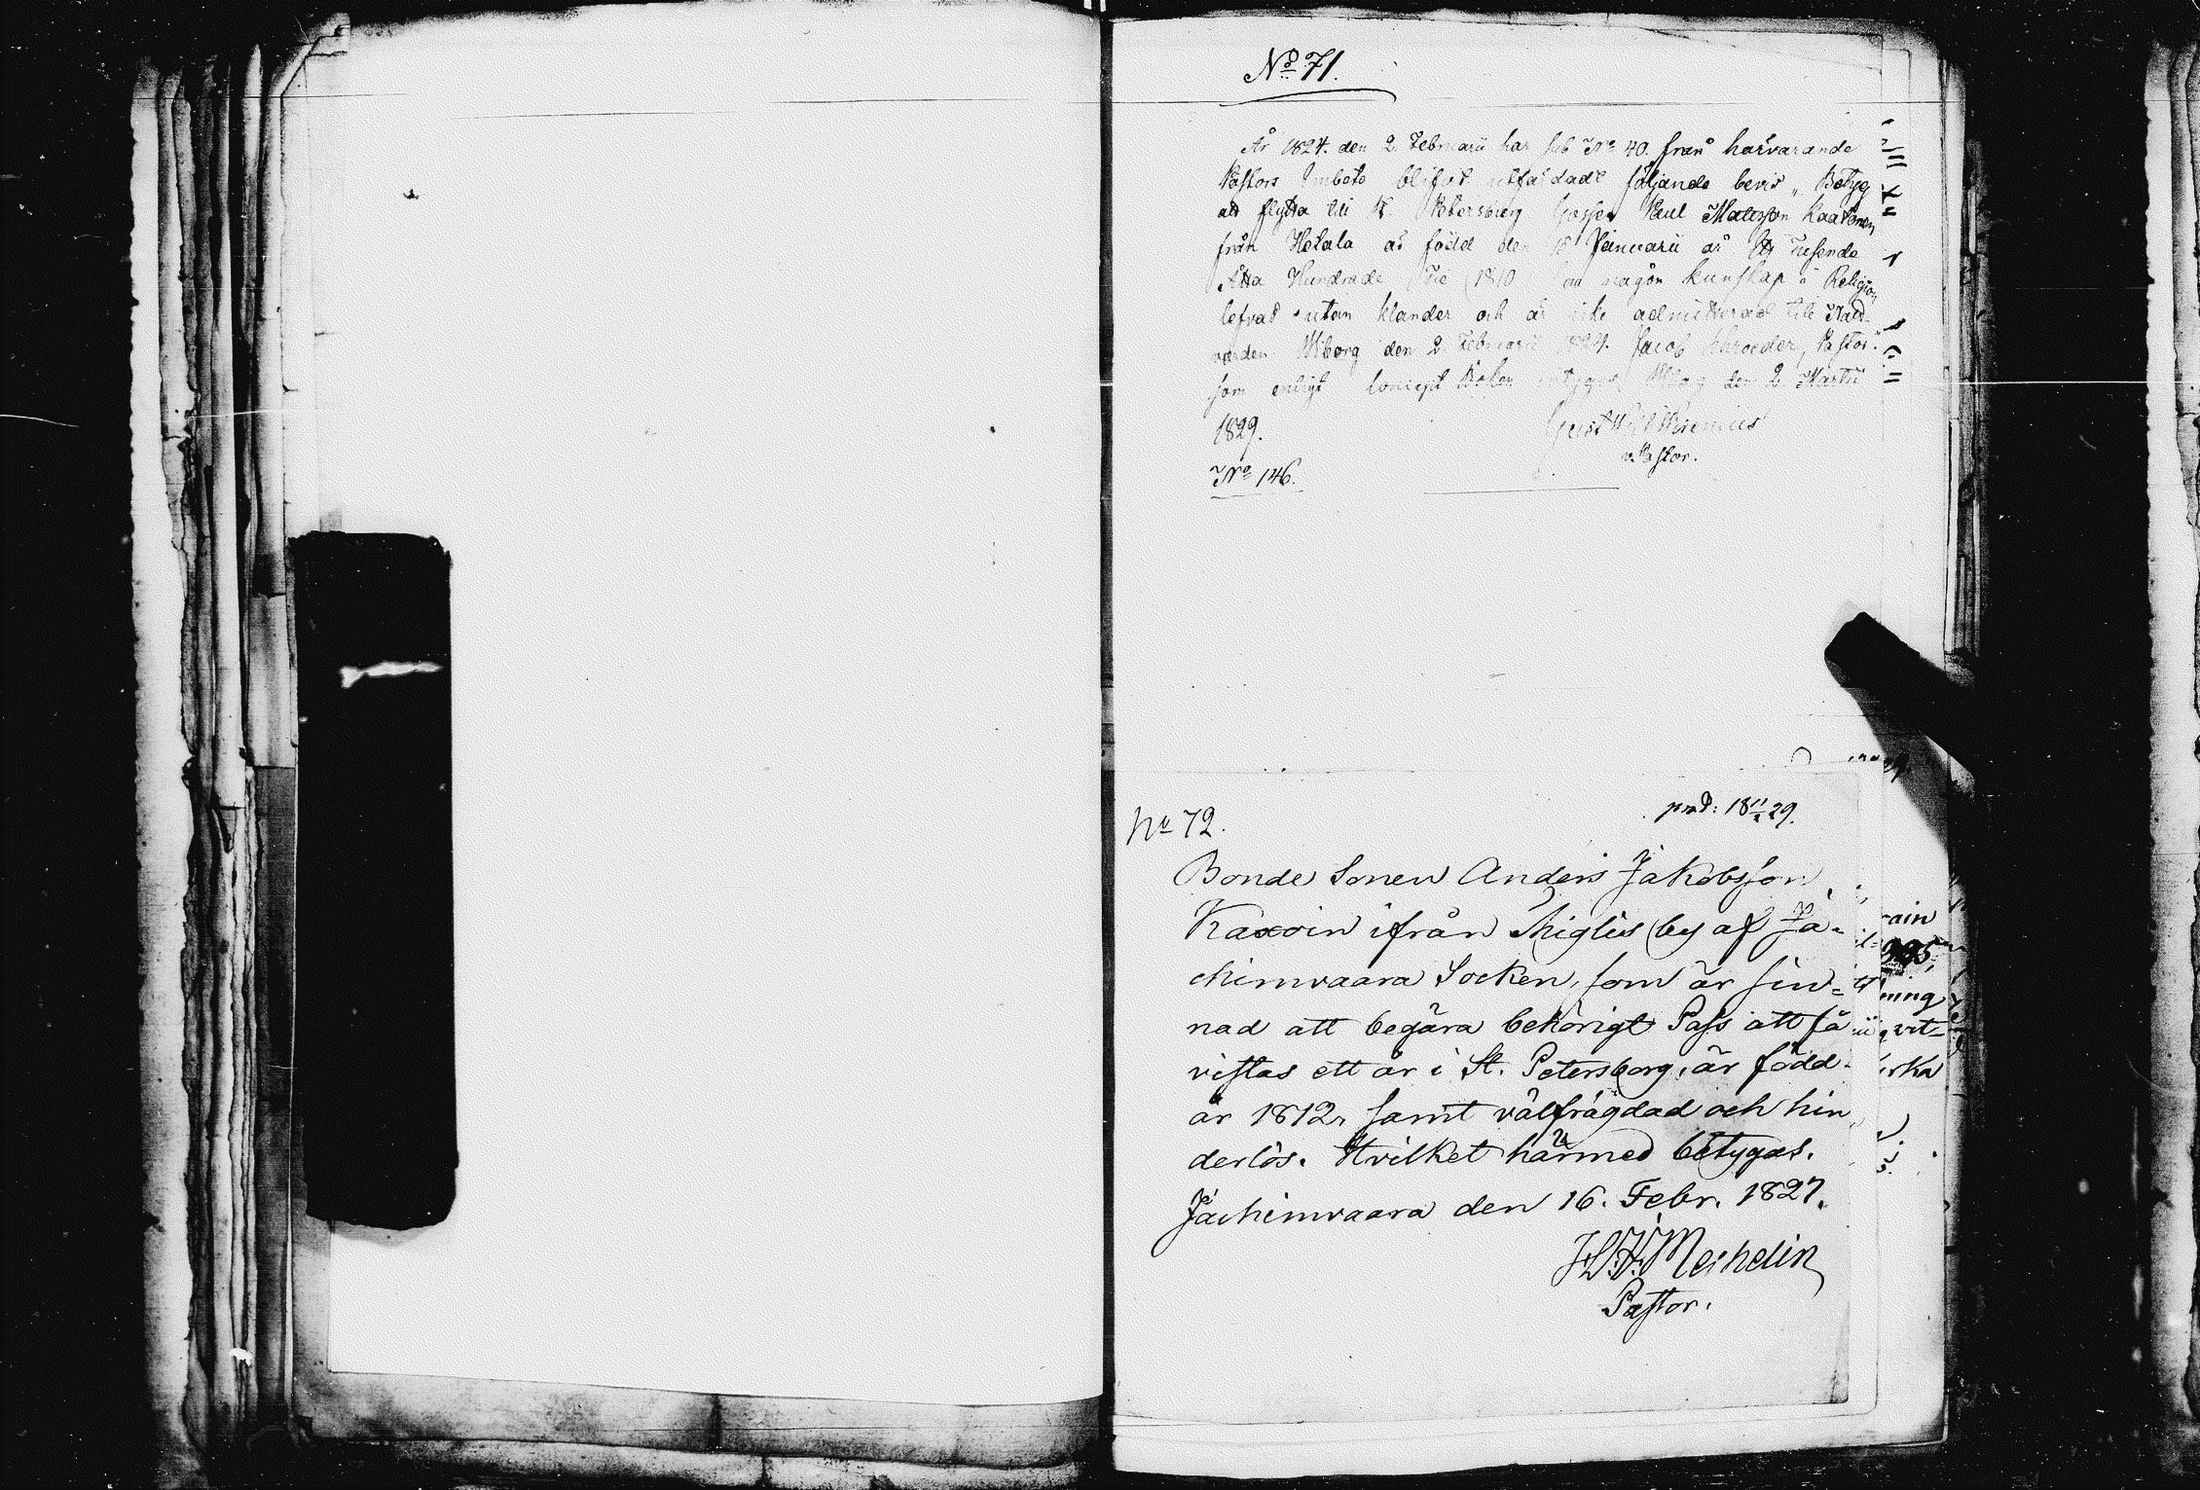 No 71.
År 1824. den 2. Februarii har sub No 40. från härvarande
Pastors Embete blifvit utfärdadt följande bevis „Betyg
att flytta till St. Petersburg Gossen Paul Matsson Kaatonen
från Hetala är född den Januarii år Ett Tusende
Åtta Hundrade Tie (1810 har någon kunskap i Religion
lefvat utan klander och är icke admitterad till Natt-
varden Wiborg den 2. Februarii 1824. Jacob Schroeder, Pastor."
som enligt Concept Boken betygas Wiborg den 2. Martii
1829.
v. Pastor.
No 146.
No 72.
prod: 18 11/2 29.
Bonde Sonen Anders Jakobsson
ifrån by af Ja-
chimvaara Socken, som är sin-
nad att begära behörigt Pass att få
vistas ett år i St. Petersborg, är född
år 1812, samt välfrägdad och hin
derlös. Hvilket härmed betygas.
Jachimvaara den 16. Febr. 1827.
Mechelin
Pastor.